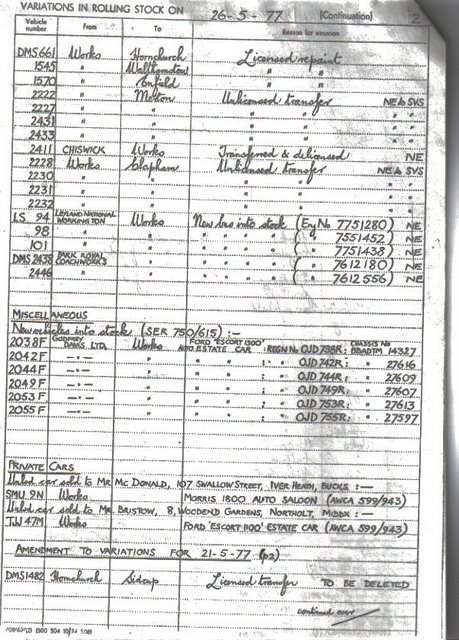 VARIATIONS IN ROLLING STOCK ON 26-5-77 (Continuation) 2
Vehicle number From To Reason for variation
DMS 661 Works Hornchurch Licensed repaint
1545 " Walthamstow " "
1570 " Enfield " "
2222 " Merton Unlicensed transfer NE & SVS
2227 " " " " " "
2431 " " " " " "
2433 " " " " " "
2411 CHISWICK Works Transferred & delicensed NE
2228 Works Clapham Unlicensed transfer NE & SVS
2230 " " " " " "
2231 " " " " " "
2232 " " " " " "
LS. 94 LEYLAND NATIONAL WORKINGTON Works New bus into stock (Eng No 7751280) NE
98 " " " " " " ( " 7551452) NE
101 " " " " " " ( " 7751438) NE
DMS 2438 PARK ROYAL COACHWORKS " " " " " ( " 7612180) NE
2446 " " " " " " ( " 7612556) NE
MISCELLANEOUS
New vehicles into stock (SER 750/615) :—
2038F GODFREY DAVIS LTD, Works FORD 'ESCORT 1300' ESTATE CAR ; REGN No OJD 738R; CHASSIS No 14327
2042F —"— " " " ; " OJD 742R; " 27616
2044F —"— " " " ; " OJD 744R; " 27609
2049F —"— " " " ; " OJD 749R; " 27607
2053F —"— " " " ; " OJD 753R; " 27613
2055F —"— " " " ; " OJD 755R; " 27597
PRIVATE CARS
Used car sold to MR MC DONALD, 107 SWALLOW STREET, IVER HEATH, BUCKS :—
SMU 9N Works MORRIS 1800 AUTO SALOON (AWCA 599/943)
Used car sold to MR. BRISTOW, 8, WOODEND GARDENS, NORTHOLT, MIDDX :—
47M Works FORD 'ESCORT 1100' ESTATE CAR (AWCA 599/943)
AMENDMENT TO VARIATIONS FOR 21-5-77 (p2)
DMS1482 Hornchurch Sidcup Licensed transfer TO BE DELETED
continued over